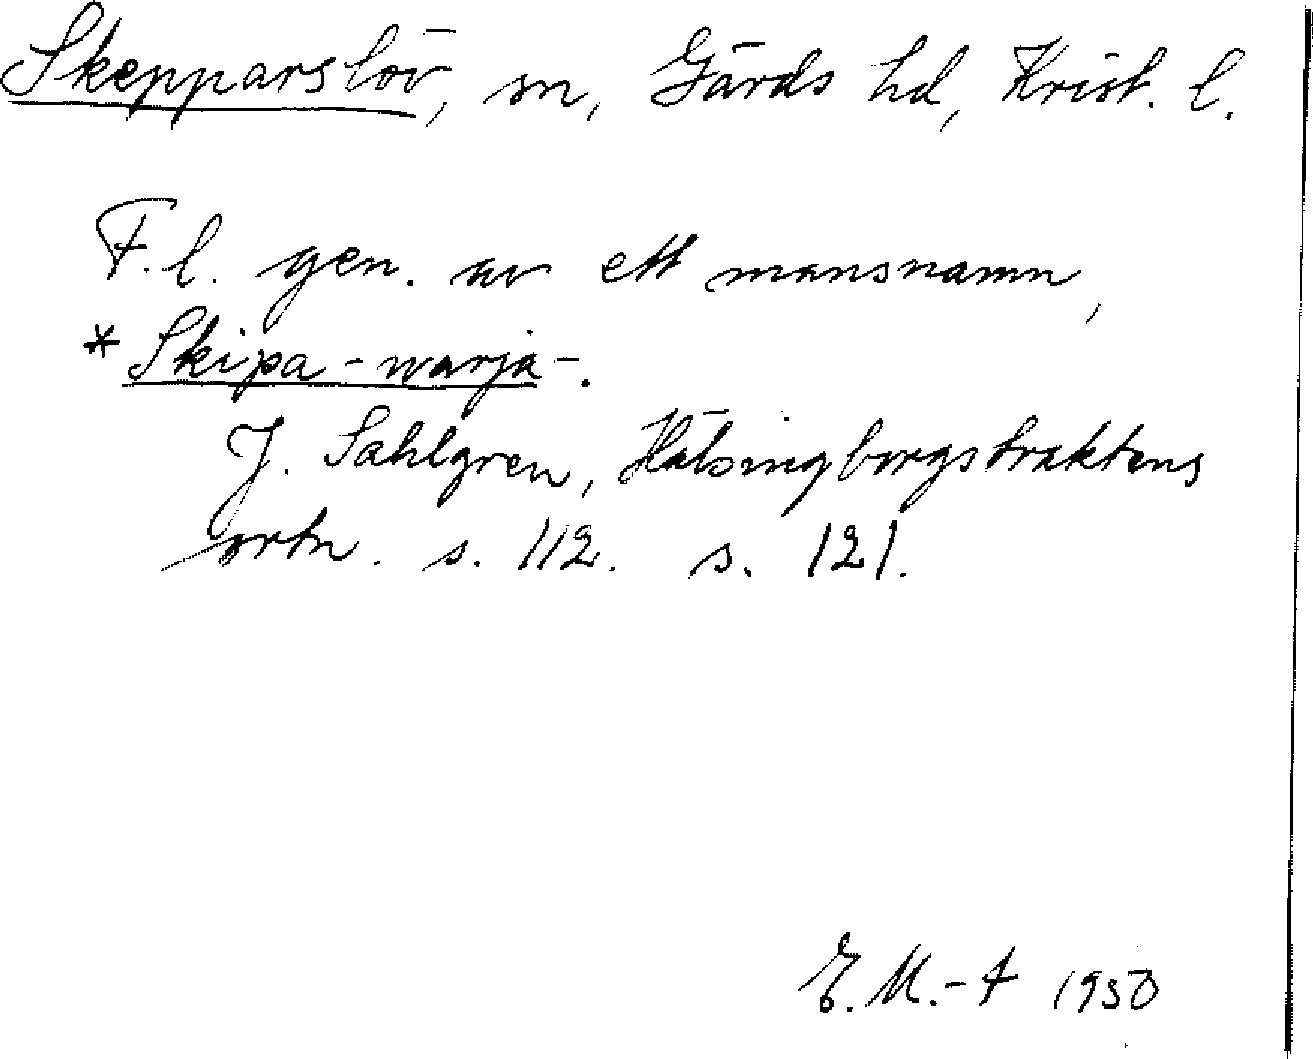 Skepparslöv, sn, Gärds hd, Krist. l.
F.l. gen. av ett mansnamn,
*Skipa-warja-.
J. Sahlgren, Hälsingborgstraktens
ortn. s. 112. s. 121.
E. M.-F 1950